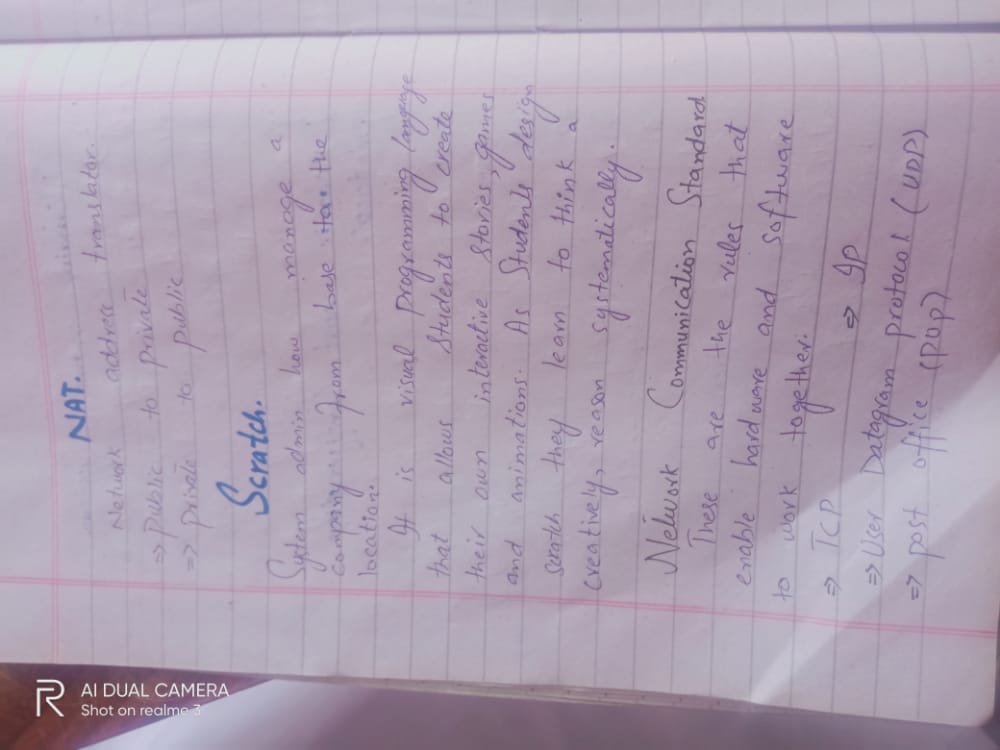 NAT.
Network address translator.
⇒ Public to private
⇒ private to public
Scratch.
System admin how manage a
company from base to the
location.
It is visual programming language
that allows students to create
their own interactive stories, games
and animations. As Students design
scratch they learn to think a
creatively, reason systematically.
Network Communication Standard
These are the rules that
enable hardware and software
to work together.
⇒ TCP ⇒ IP
⇒ User Datagram protocol (UDP)
⇒ post office (POP)
R
AI DUAL CAMERA
Shot on realme 3